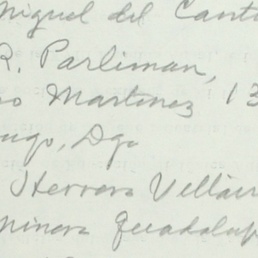 Miguel del Cant
R. Parliman,
Martinez 13
ngo, Dgo
Herrera Villar
minera Guadalup